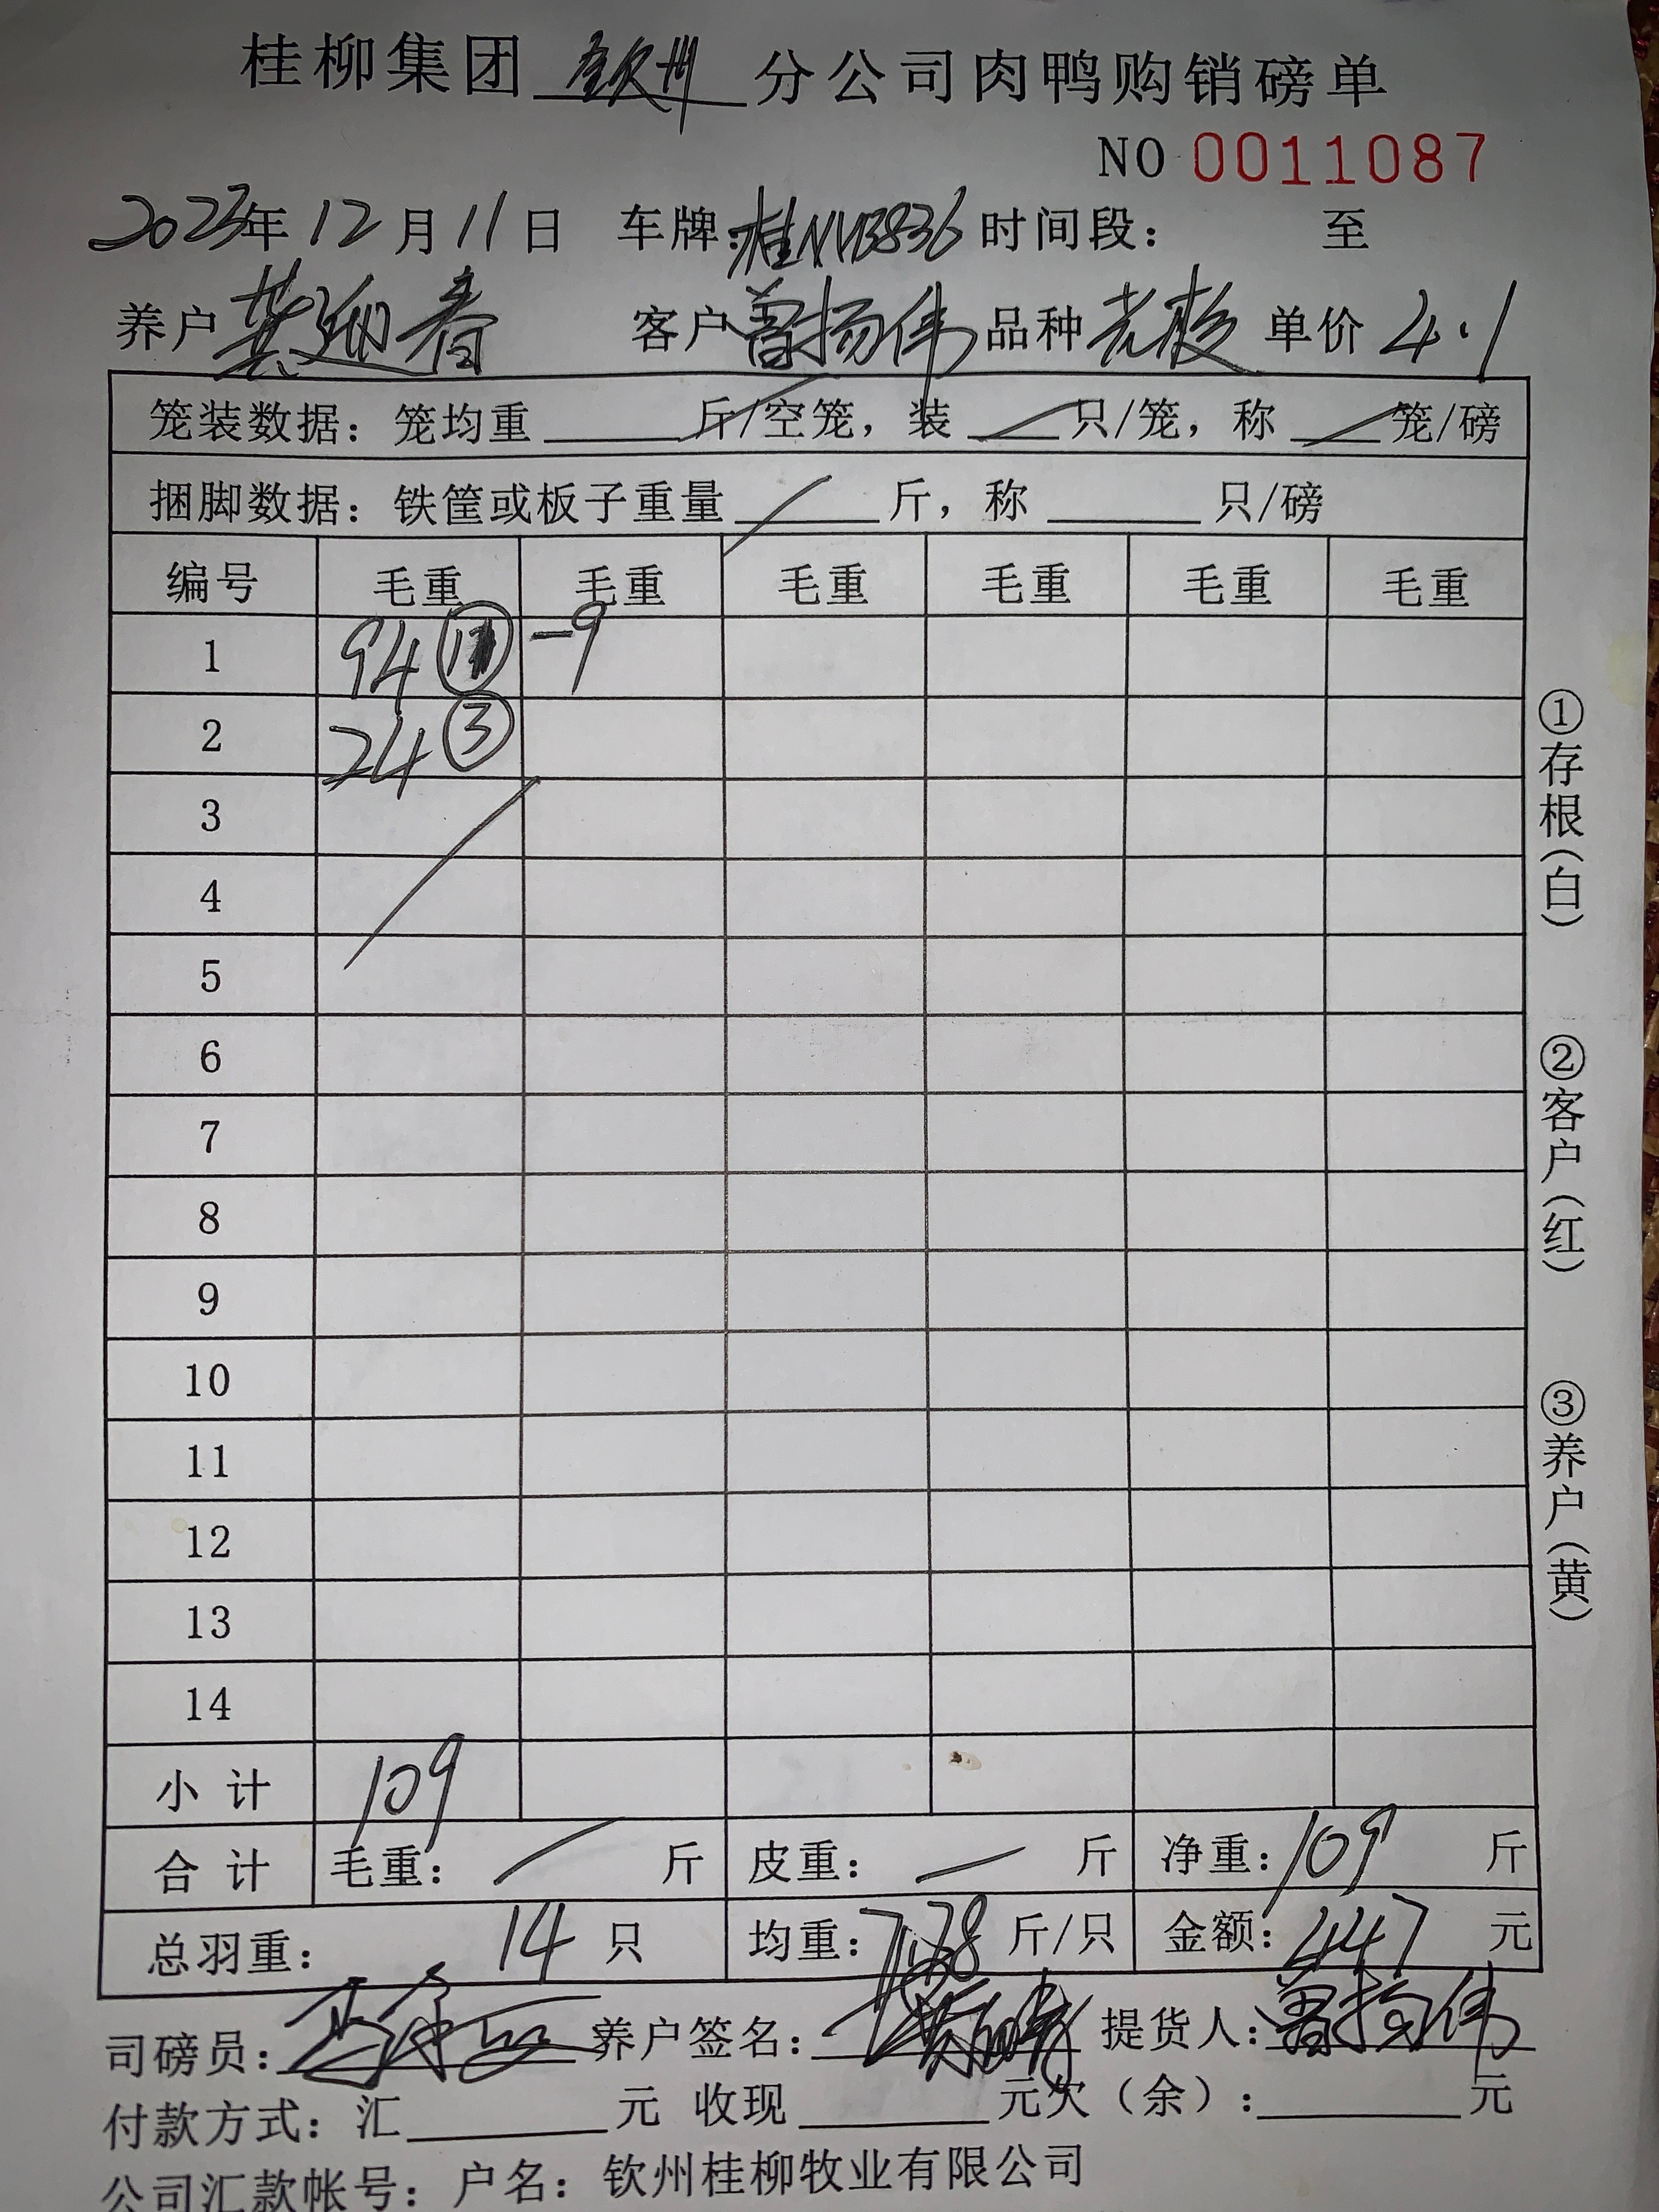 桂柳集团 钦州 分公司肉鸭购销磅单
NO 0011087
2023年 12月 11日 车牌:桂NVB836 时间段： 至
养户 龚迎春 客户 曾扬伟 品种 单价 4.1
笼装数据：笼均重 斤/空笼，装 只/笼，称 笼/磅
捆脚数据：铁筐或板子重量 斤，称 只/磅
编号 毛重 毛重 毛重 毛重 毛重 毛重
1 94 -9
2 24 ③
3
4
5
6
7
8
9
10
11
12
13
14
小计 109
合计 毛重： 斤 皮重： 斤 净重：109 斤
总羽重： 14 只 均重：7.78 斤/只 金额：447 元
司磅员： 养户签名： 提货人：曾扬伟
付款方式：汇 元 收现 元欠（余）： 元
公司汇款帐号：户名：钦州桂柳牧业有限公司
①存根（白）
②客户（红）
③养户（黄）